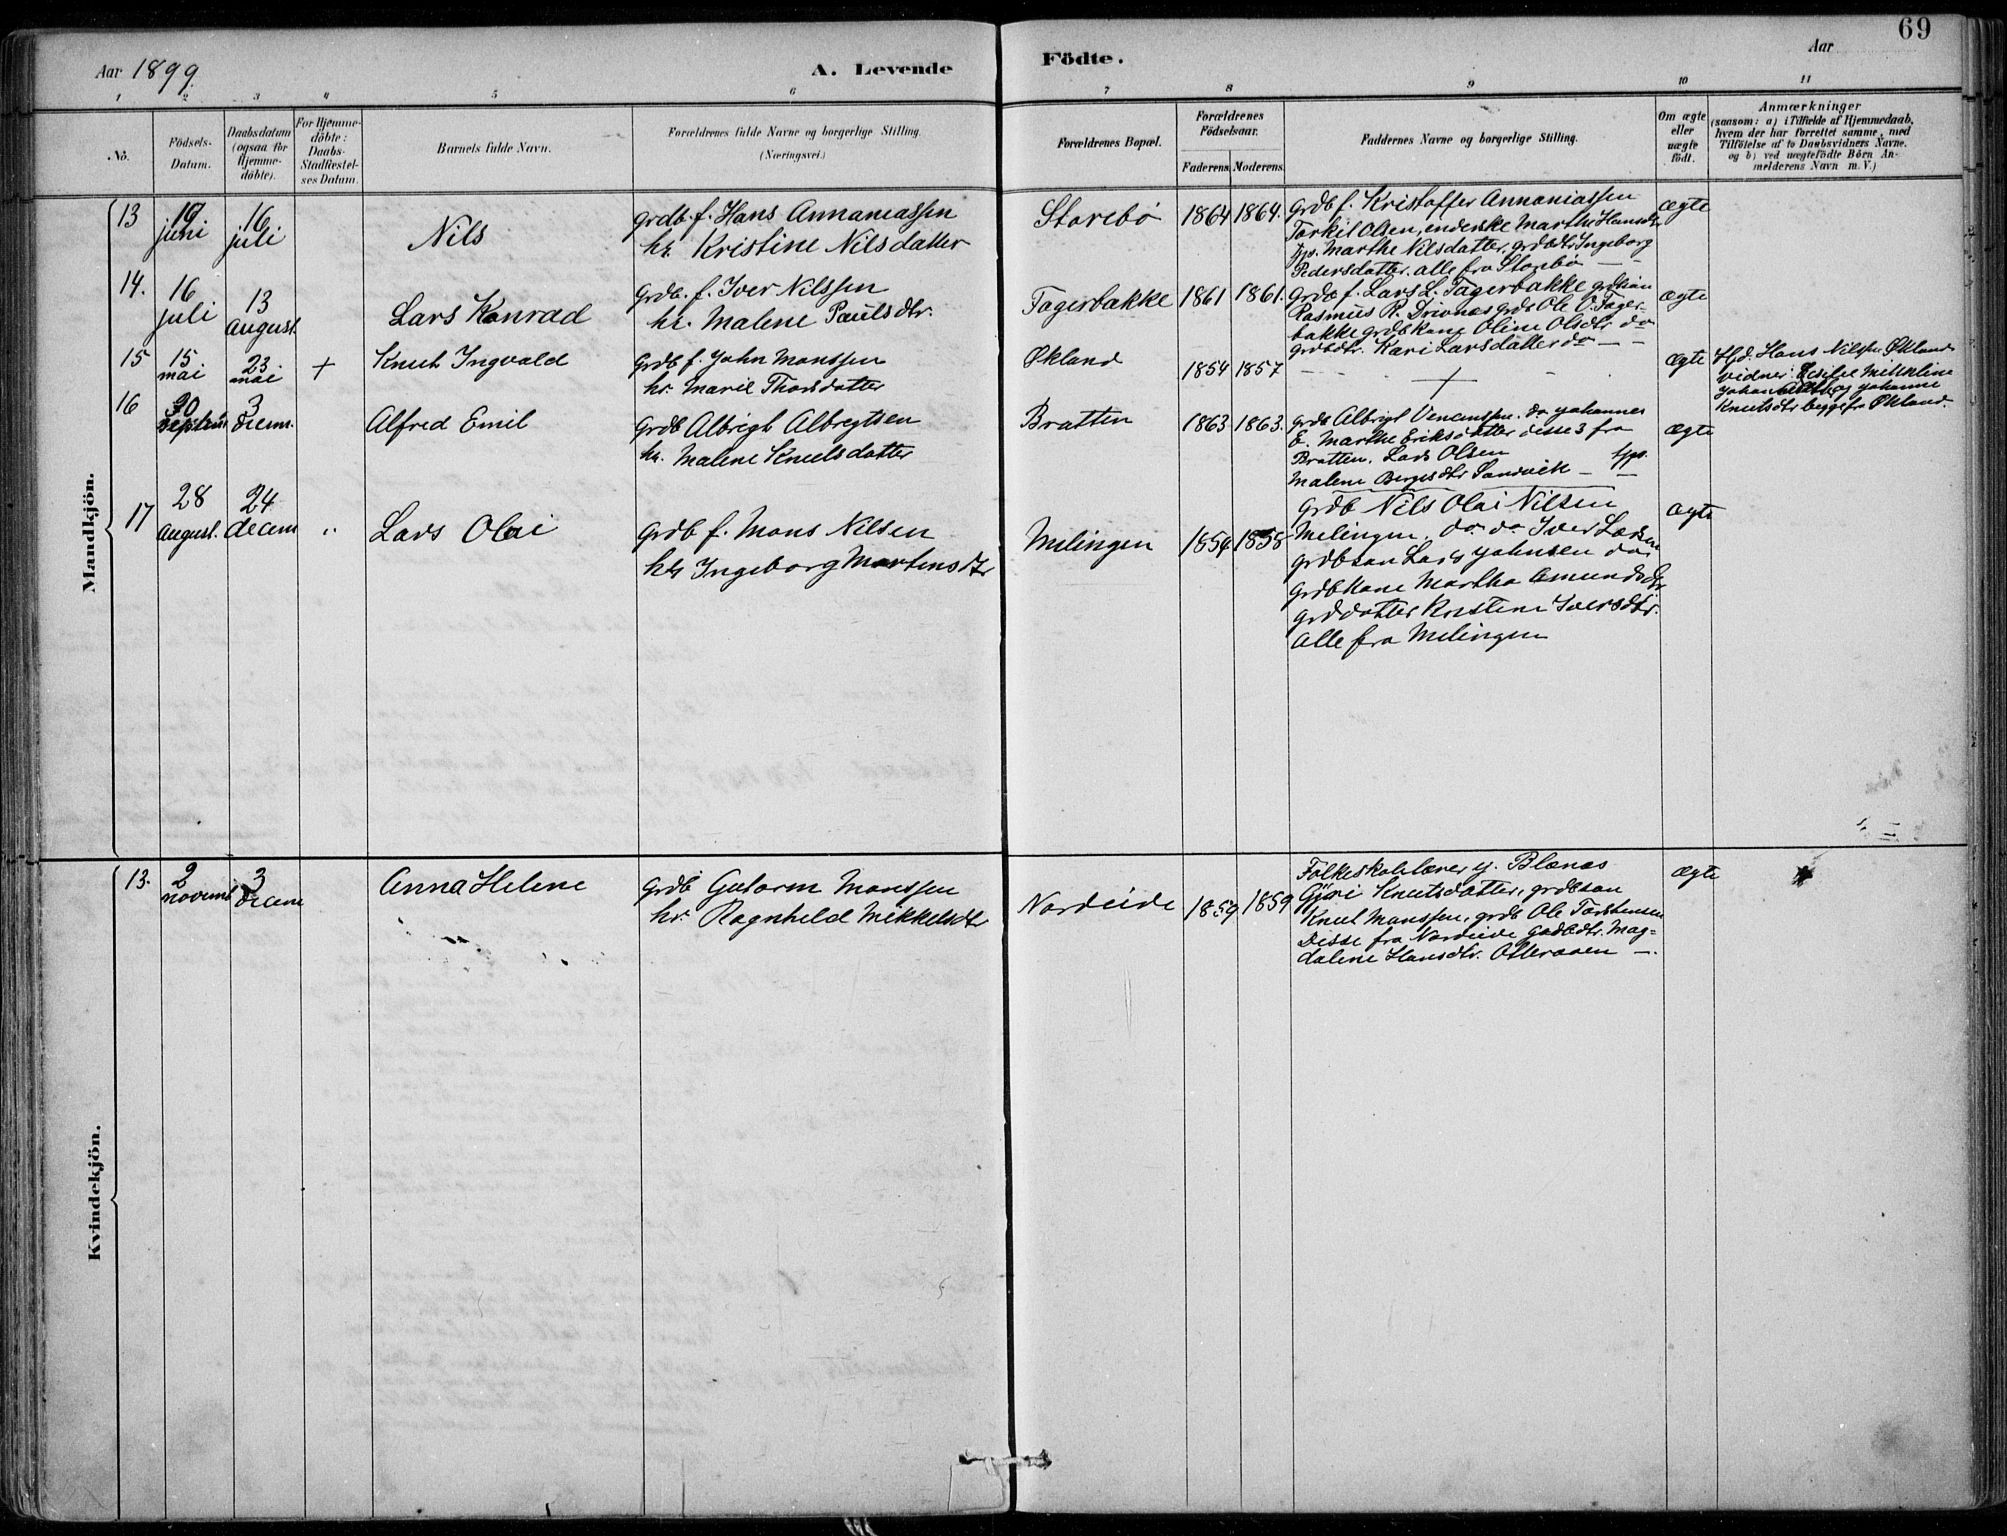 69
Aar 1899.
A. Levende
Födte.
Aar
1 2 3 4 5 6 7 8 9 10 11
No.
Födsels-
Datum.
Daabsdatum
(ogsaa for
Hjemme-
döbte).
For Hjemme-
döbte:
Daabs-
Stadfæstel-
ses Datum.
Barnets fulde Navn.
Forældrenes fulde Navne og borgerlige Stilling.
(Næringsvei.)
Forældrenes Bopæl.
Forældrenes
Födselsaar.
Faderens. Moderens.
Faddernes Navne og borgerlige Stilling.
Om ægte
eller
uægte
födt.
Anmærkninger
(saasom: a) i Tilfælde af Hjemmedaab,
hvem der har forrettet samme, med
Tilföielse af to Daabsvidners Navne.
og b) ved uægtefödte Börn An-
melderens Navn m. V.)
Mandkjön.
13
juni
16
juli
Nils
grdb. f. Hans Annaniassen
hr. Kristine Nilsdatter
Storebø
1864 1864.
grdb f. Kristoffer Annaniassen
Torkil Olsen, enderske Marthe Hansdtr
tjp. Marthe Nilsdatter, grdbdtr Ingeborg
Pedersdatter. alle fra Storebø
ægte
14.
16
juli
13
august.
Lars Konrad
grdb. f. Iver Nilssen
hr. Malene Paulsdtr.
Fagerbakke
1861 1861.
grdb f. Lars L. Fagerbakke grdbsøn
Rasmus R. Drivnes grdb Ole O. Fager-
bakke grdbkone Oline Olsdtr do
grdbdtr. Kari Larsdatter do
ægte
15
15
mai
23
mai
+
Knut Ingvald
grdb f. John Monssen
hr. Marie Thorsdatter
Økland
1854 1857
+
ægte
Hjd. Hans Nilssen Økland
vidner:
Johan og Johanne
Knutsdtr begge fra Økland.
16
30
3
Decem.
Alfred Emil
grdb Albrigt Albregtsen
hr. Malene Knutsdatter
Bratten
1863 1863.
grdb Albrigt do Johannes
E. Marthe Eriksdatter disse 3 fra
Bratten. Lars Olsen tjp.
Malene Bergesdtr Sandvik
ægte
17
28
August.
24
decem
"
Lars Olai
grdb f. Mons Nilsen
hr Ingeborg Martensdtr
Melingen
1854 1858
grdb Nils Olai Nilsen
Melingen. do do Iver Larsen
grdbsøn Lars Johnsen do
grdbkone Martha Amundsdtr
grddatter Kristine Iversdtr.
alle fra Melingen
ægte
Kvindekjön.
13.
2
novemb
3
Decem
Anna Helene
grdb Gutorm Monssen
hr. Ragnhild Mikkelsdtr
Nordeide
1859 1859
Folkeskolelærer J. Blænes
Gjøri Knutsdatter, grdbsøn
Knut Monssen, grdb Ole Torstensen
Disse fra Nordeide gadbdtr. Mag-
dalene Hansdtr. Otteraaen
ægte